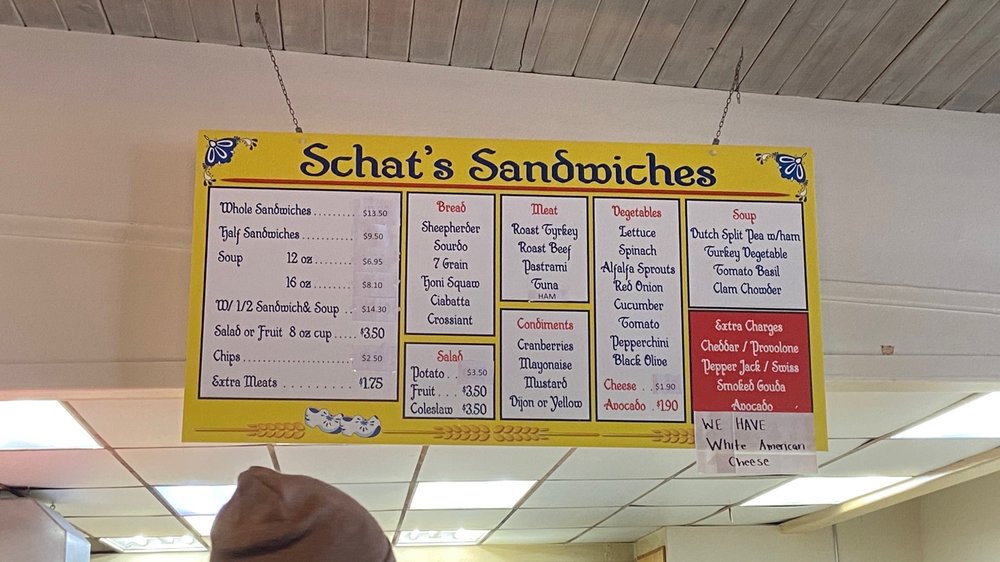 Schat's Sandwiches
Whole Sandwiches......... $13.50
Half Sandwiches........... $9.50
Soup 12 oz ......... $6.95
16 oz ......... $8.10
W/ 1/2 Sandwich& Soup .. $14.30
Salad or Fruit 8 oz cup ..... $3.50
Chips...................... $2.50
Extra Meats ............ $1.75
Bread
Sheepherder
Sourdo
7 Grain
Honi Squaw
Ciabatta
Crossiant
Salad
Potato .. $3.50
Fruit ... $3.50
Coleslaw $3.50
Meat
Roast Tyrkey
Roast Beef
Pastrami
Tuna
HAM
Condiments
Cranberries
Mayonaise
Mustard
Dijon or Yellow
Vegetables
Lettuce
Spinach
Alfalfa Sprouts
Red Onion
Cucumber
Tomato
Pepperchini
Black Olive
Cheese .. $1.90
Avocado . $1.90
Soup
Dutch Split Pea w/ham
Turkey Vegetable
Tomato Basil
Clam Chowder
Extra Charges
Cheddar / Provolone
Pepper Jack / Swiss
Smoked Gouda
Avocado
WE HAVE
White American
Cheese